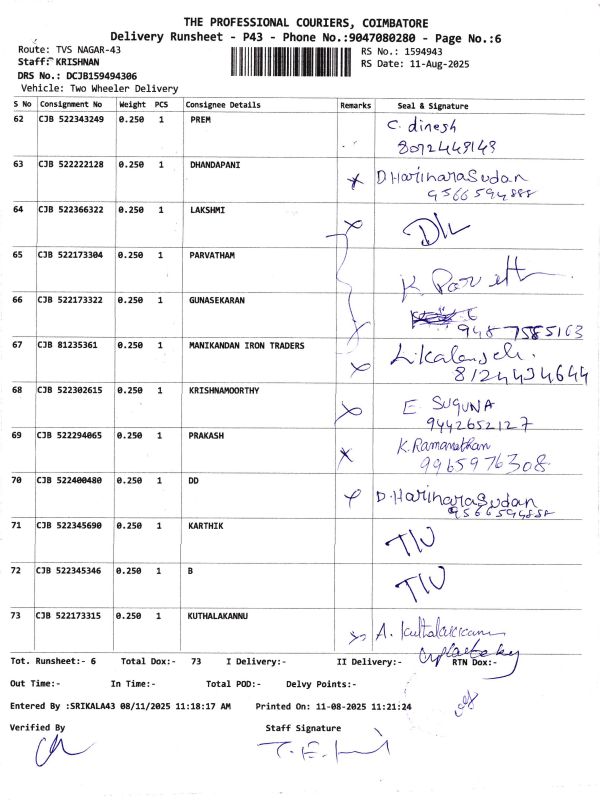 THE PROFESSIONAL COURIERS, COIMBATORE
Delivery Runsheet - P43 - Phone No.:9047080280 - Page No.:6
Route: TVS NAGAR-43
RS No.: 1594943
Staff: KRISHNAN
RS Date: 11-Aug-2025
DRS No.: DCJB159494306
Vehicle: Two Wheeler Delivery
S No Consignment No Weight PCS Consignee Details Remarks Seal & Signature
62 CJB 522343249 0.250 1 PREM C. dinesh
8072449149
63 CJB 522222128 0.250 1 DHANDAPANI D HariharaSudan
9566594888
64 CJB 522366322 0.250 1 LAKSHMI
65 CJB 522173304 0.250 1 PARVATHAM
66 CJB 522173322 0.250 1 GUNASEKARAN
9487585163
67 CJB 81235361 0.250 1 MANIKANDAN IRON TRADERS
8124434644
68 CJB 522302615 0.250 1 KRISHNAMOORTHY E SUGUNA
9442652127
69 CJB 522294065 0.250 1 PRAKASH K. Ramanathan
9965976308
70 CJB 522400480 0.250 1 DD D. HariharaSudan
9566594888
71 CJB 522345690 0.250 1 KARTHIK
72 CJB 522345346 0.250 1 B
73 CJB 522173315 0.250 1 KUTHALAKANNU
Tot. Runsheet:- 6 Total Dox:- 73 I Delivery:- II Delivery:- RTN Dox:-
Out Time:- In Time:- Total POD:- Delvy Points:-
Entered By :SRIKALA43 08/11/2025 11:18:17 AM Printed On: 11-08-2025 11:21:24
Verified By Staff Signature